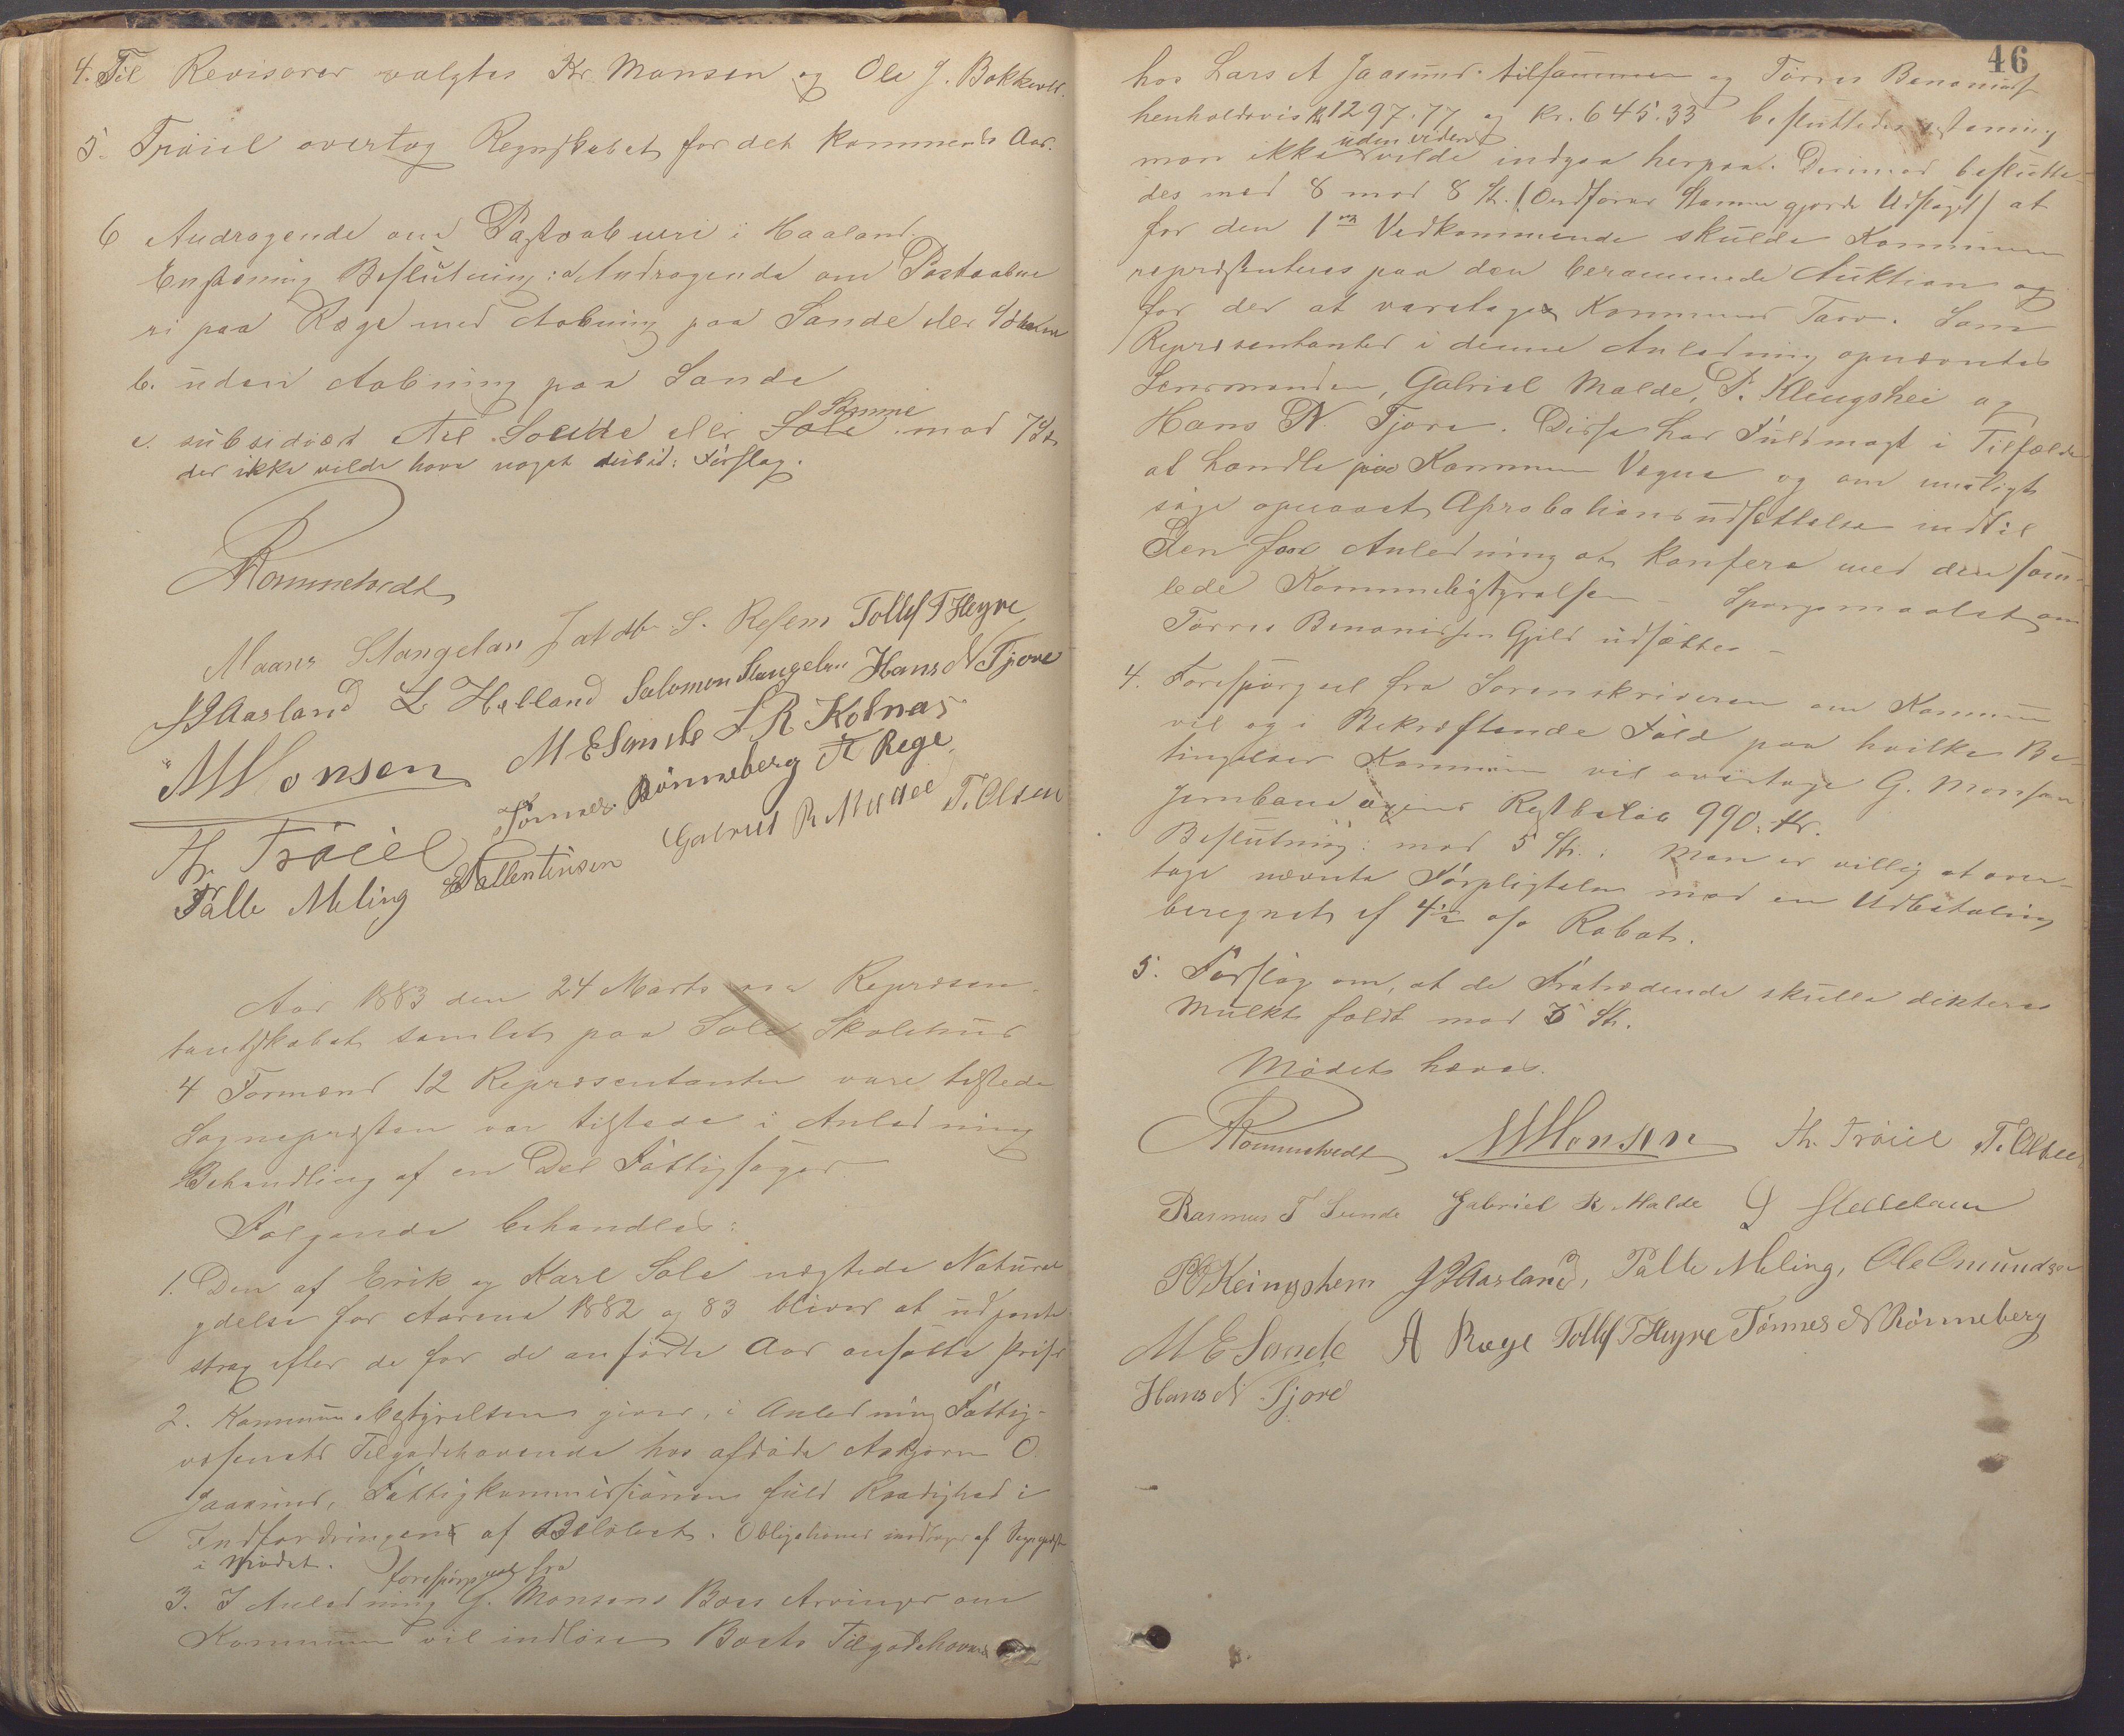 4. Til Revisorer valgtes Kr. Monsen og Ole J. Bokkevold.
5. Trøiel overtog Regnskabet for det kommende Aar.
6 Andragende om Postaabneri i Haaland.
Enstemmig Beslutning: a Andragende om Postaabne
ri paa Ræge med Aabning paa Sande eler Sømme
b. uden Aabning paa Sande
c. subsidiært til Sande eler Sola Sømme mod 7 St.
der ikke vilde have noget subsid: Forslag.
Rommetvedt
Maans Stangelan Jakob S. Risem Tollef T Heyre
JJAasland L Helland Salomon Stangelan Hans N Tjore
MMonsen M E Sande J R Kolnas
Th. Trøiel Tønnes Rønneberg A Rege
Palle Meling E Vallentinsen Gabriel R Malde T. Olsen
Aar 1883 den 24 Marts var Repræsen-
tantskabet samlet paa Sola Skolehus
4 Formænd 12 Repræsentanter vare tilstede
Sognepresten var tilstede i Anledning
Behandling af en Del Fattigsager.
Følgende behandles:
1. Den af Erik og Karl Sola nægtede Natural
ydelse for Aarene 1882 og 83 bliver at udpante
strax efter de for de anførte Aar ansatte Priser
2. Kommunebestyrelsen giver, i Anledning Fattig-
væsenets Tilgodehavende hos afdøde Asbjørn O.
Jaasund, Fattigkommissionen fuld Raadighed i
Indfordringen af Beløbet. Obligationer modtoges af Sognepresten
i Mødet.
3. I Anledning forespørgsel fra G. Monsens Boes Arvinger om
Kommunen vil indløse Boets Tilgodehavende
46
hos Lars A Jaasund tilsammen og Tørres Benonisen
henholdsvis Kr 1297.77 og Kr. 645.33 besluttedes enstemmig
man ikke uden videre vilde indgaa herpaa. Derimod beslutte-
des med 8 mod 8 St. (Ordførers Stemme gjorde Udslaget) at
for den 1ns Vedkommende skulde Kommunen
repræsenteres paa den berammede Auktion og
for der at varetage Kommunens Tarv. Som
Repræsentanter i denne Anledning opnævntes
Lensmanden, Gabriel Malde, P. Klengshei og
Hans N. Tjore. Disse har Fuldmagt i Tilfælde
at handle paa Kommunens Vegne og om muligt
søge opnaaet Aprobationsudsættelse indtil
den faar Anledning at konfere med den sam-
lede Kommunebestyrelse – Spørgsmaalet om
Tørres Benonisen Gjeld udsættes –
4. Forespørgsel fra Sorenskriveren om Kommunen
vil og i Bekræftende Fald paa hvilke Be-
tingelser Kommunen vil overtage G. Monsen
Jernbane Restbeløb 990. Kr.
Beslutning: mod 5 St.: Man er villig at over-
tage nævnte Forpligtelse mod en Udbetaling
beregnet af 4½ o/o Rabat.
5. Forslag om, at de Fratrædende skulle dikteres
Mulkt faldt mod 5 St.
Mødet hæves.
Rommetvedt MMonsen Th. Trøiel T. Olsen
Rasmus T Sunde Gabriel R. Malde
JJAasland, Palle Meling, Ole Omundsen
M E Sande A Ræge Tollef T Heyre Tønnes N Rønneberg
Hans N Tjore